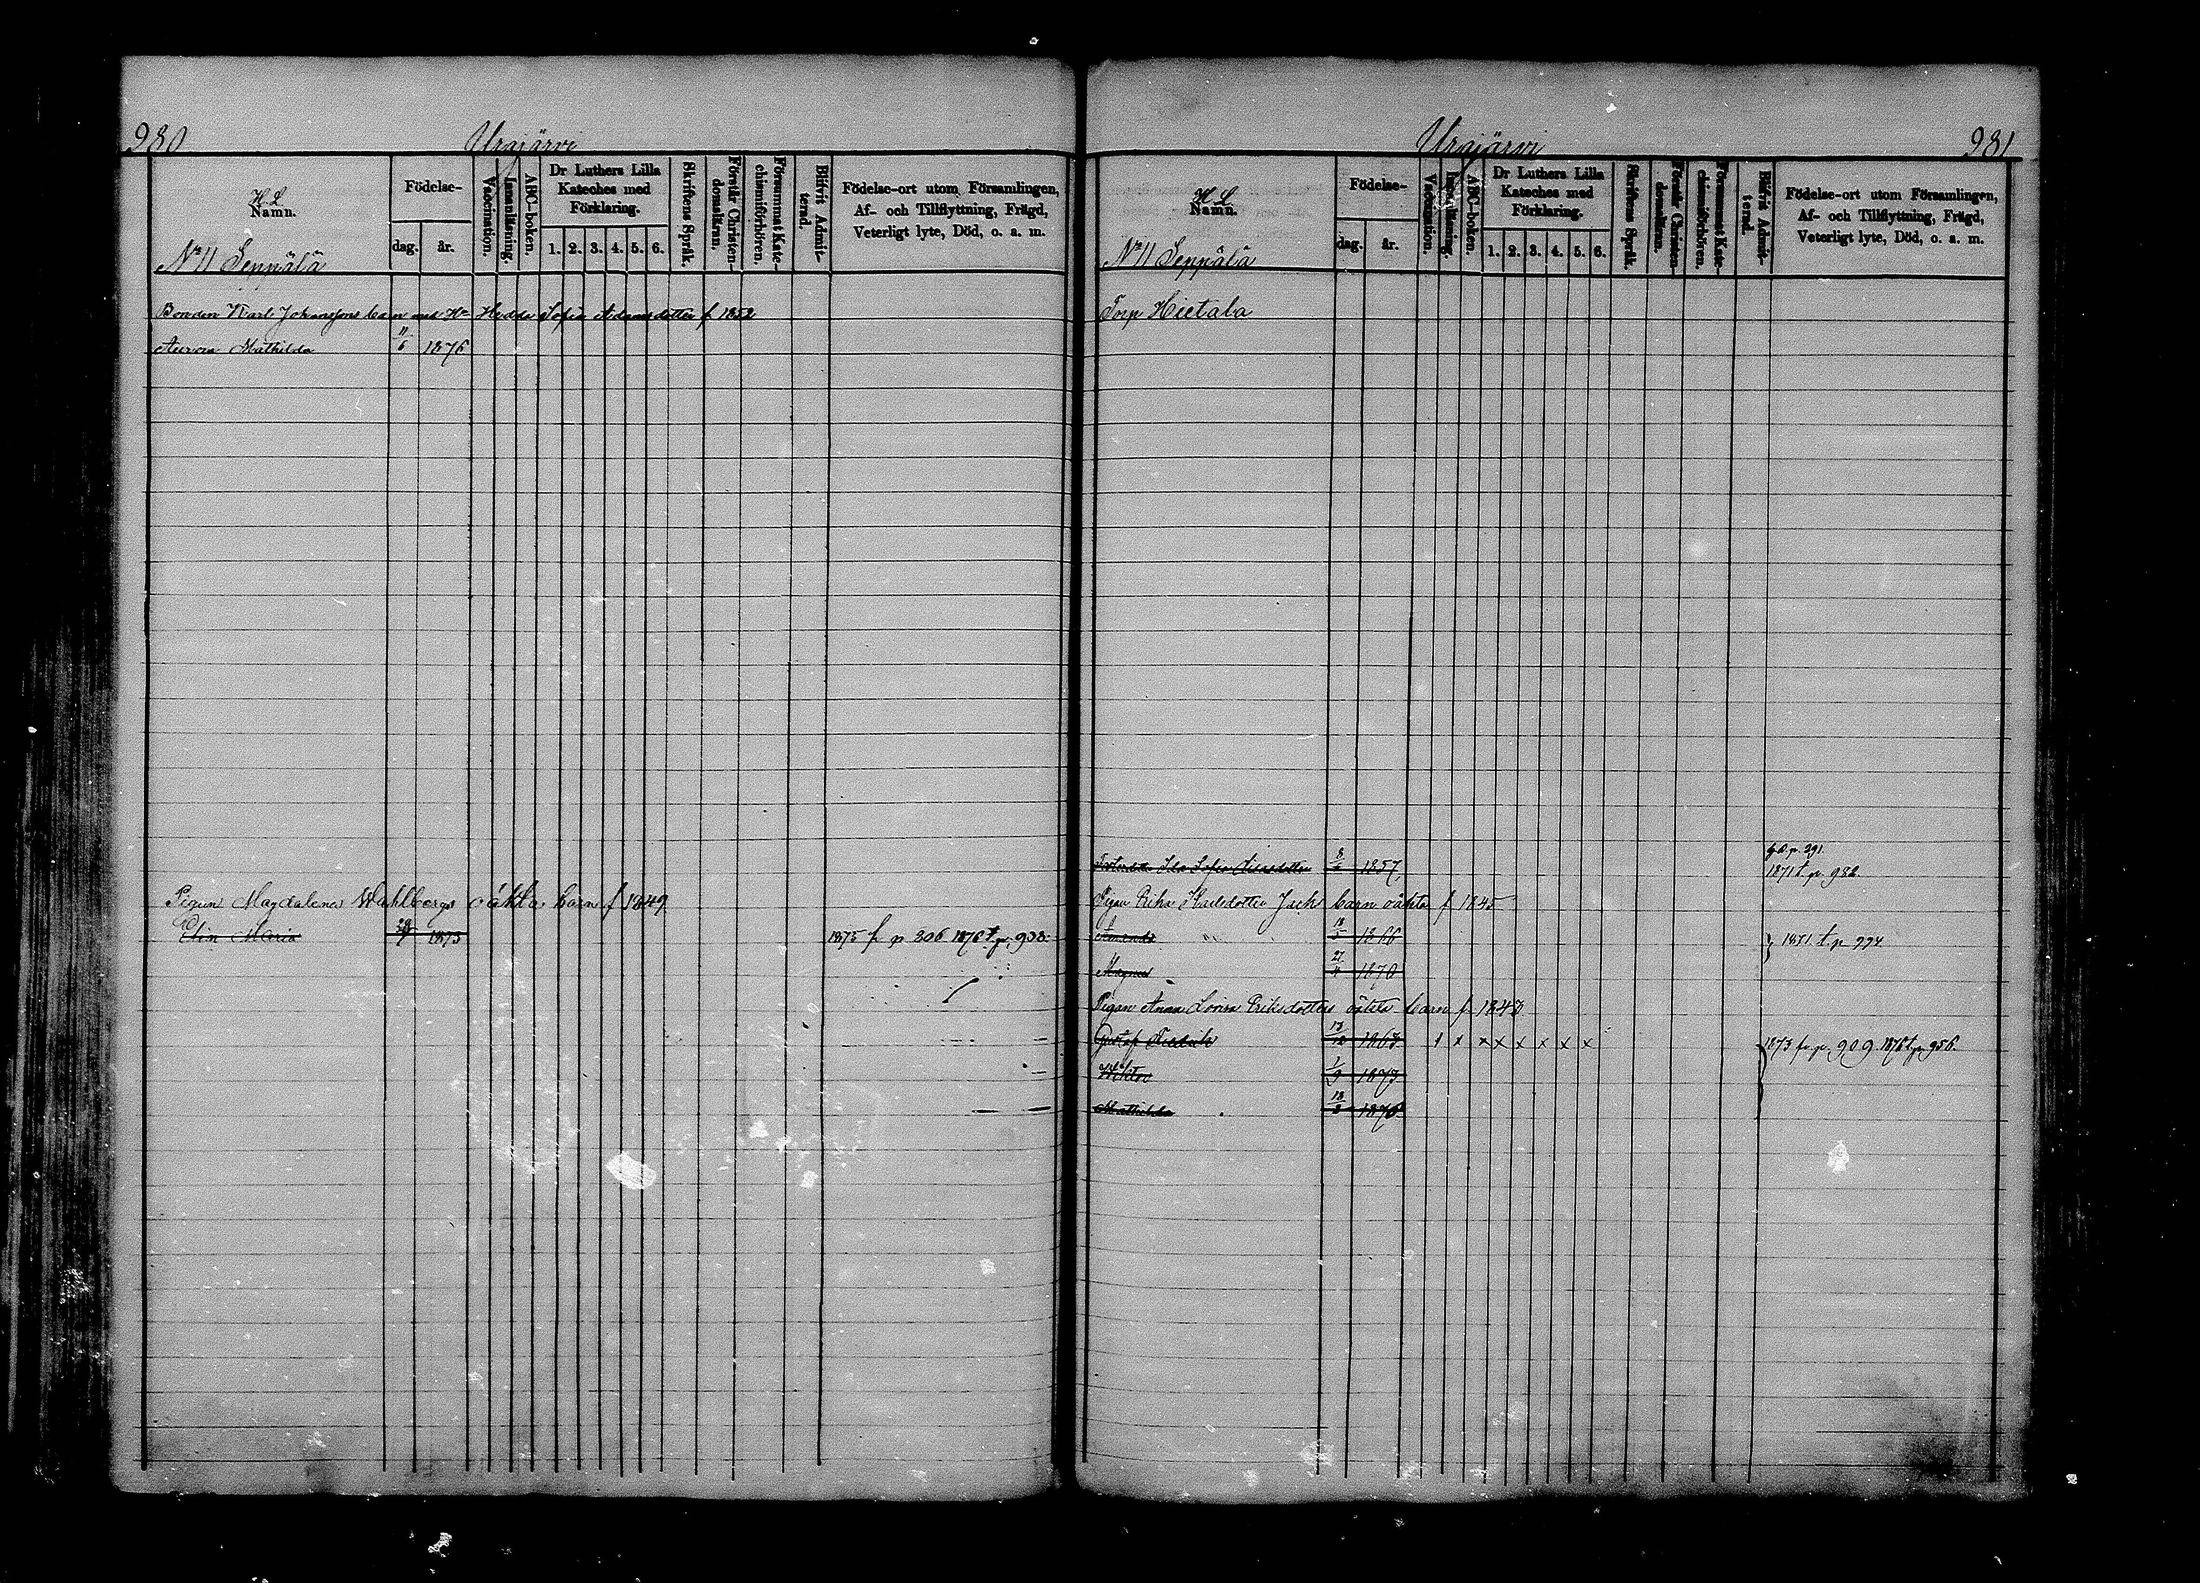 980 Urajärvi
H. L.
Namn.
Födelse-
dag. år.
Vaccination.
Innanläsning.
ABC-boken.
Dr Luthers Lilla Kateches med Förklaring.
1. 2. 3. 4. 5. 6.
Skriftens Språk.
Förstår Christendomsläran.
Försummat Katechismiförhören.
Blifvit Admitterad.
Födelse-ort utom Församlingen, Af- och Tillflyttning, Frägd, Veterligt lyte, Död, o. a. m.
No 11 Seppälä
Bonden Karl Johanssons barn med Hu Hedda Sofia Adamsdotter f 1852
Aurora Mathilda 11/6 1876
Pigan Magdalena Wahlbergs oäkta barn f 1849
Elin Maria 1873 1875 f p 306 1876 t. p. 938.
Urajärvi 981
H. L.
Namn.
Födelse-
dag. år.
Vaccination.
Innanläsning.
ABC-boken.
Dr Luthers Lilla Kateches med Förklaring.
1. 2. 3. 4. 5. 6.
Skriftens Språk.
Förstår Christendomsläran.
Försummat Katechismiförhören.
Blifvit Admitterad.
Födelse-ort utom Församlingen, Af- och Tillflyttning, Frägd, Veterligt lyte, Död, o. a. m.
No 11 Seppälä
Torp Hietala
p. 291.
Ida Sofia 1857, 1871 t. p. 982
Pigan Erika Karlsdotter barn oäkta f 1845
Amanda 1866 1871 t. p. 994
Magnus 27/11 1870
Pigan Anna Lovisa Eriksdotters oäkta barn f. 1843
Gustaf Fredrik 13/12 1863 x x x x x x x 1873 fr. p. 909 1876 t. p. 956.
Wiktor 1/9 1873
Mathilda 18/3 1876